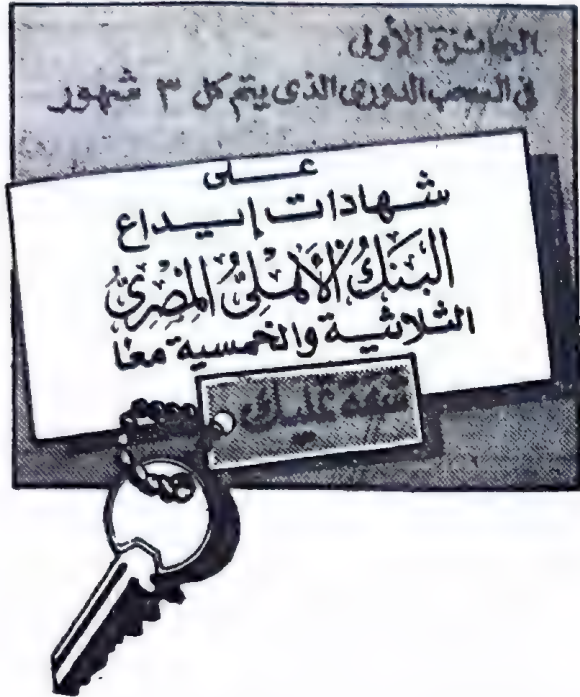 الجائزة الأولى
في السحب الدوري الذي يتم كل ٣ شهور
على
شهادات إيداع
البنك الأهلي المصري
الثلاثية والخمسية معًا
شقة تمليك